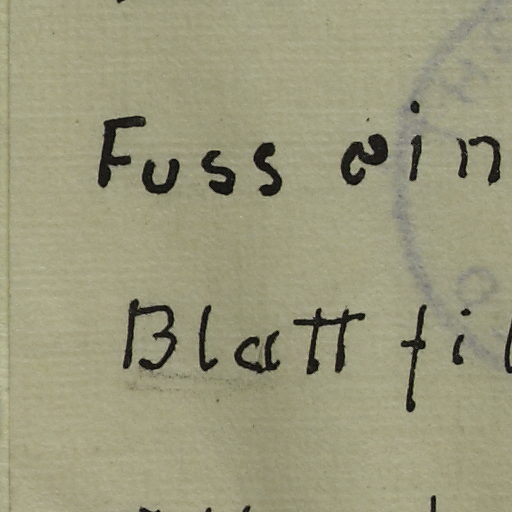 Fuss ein
Blatt fil